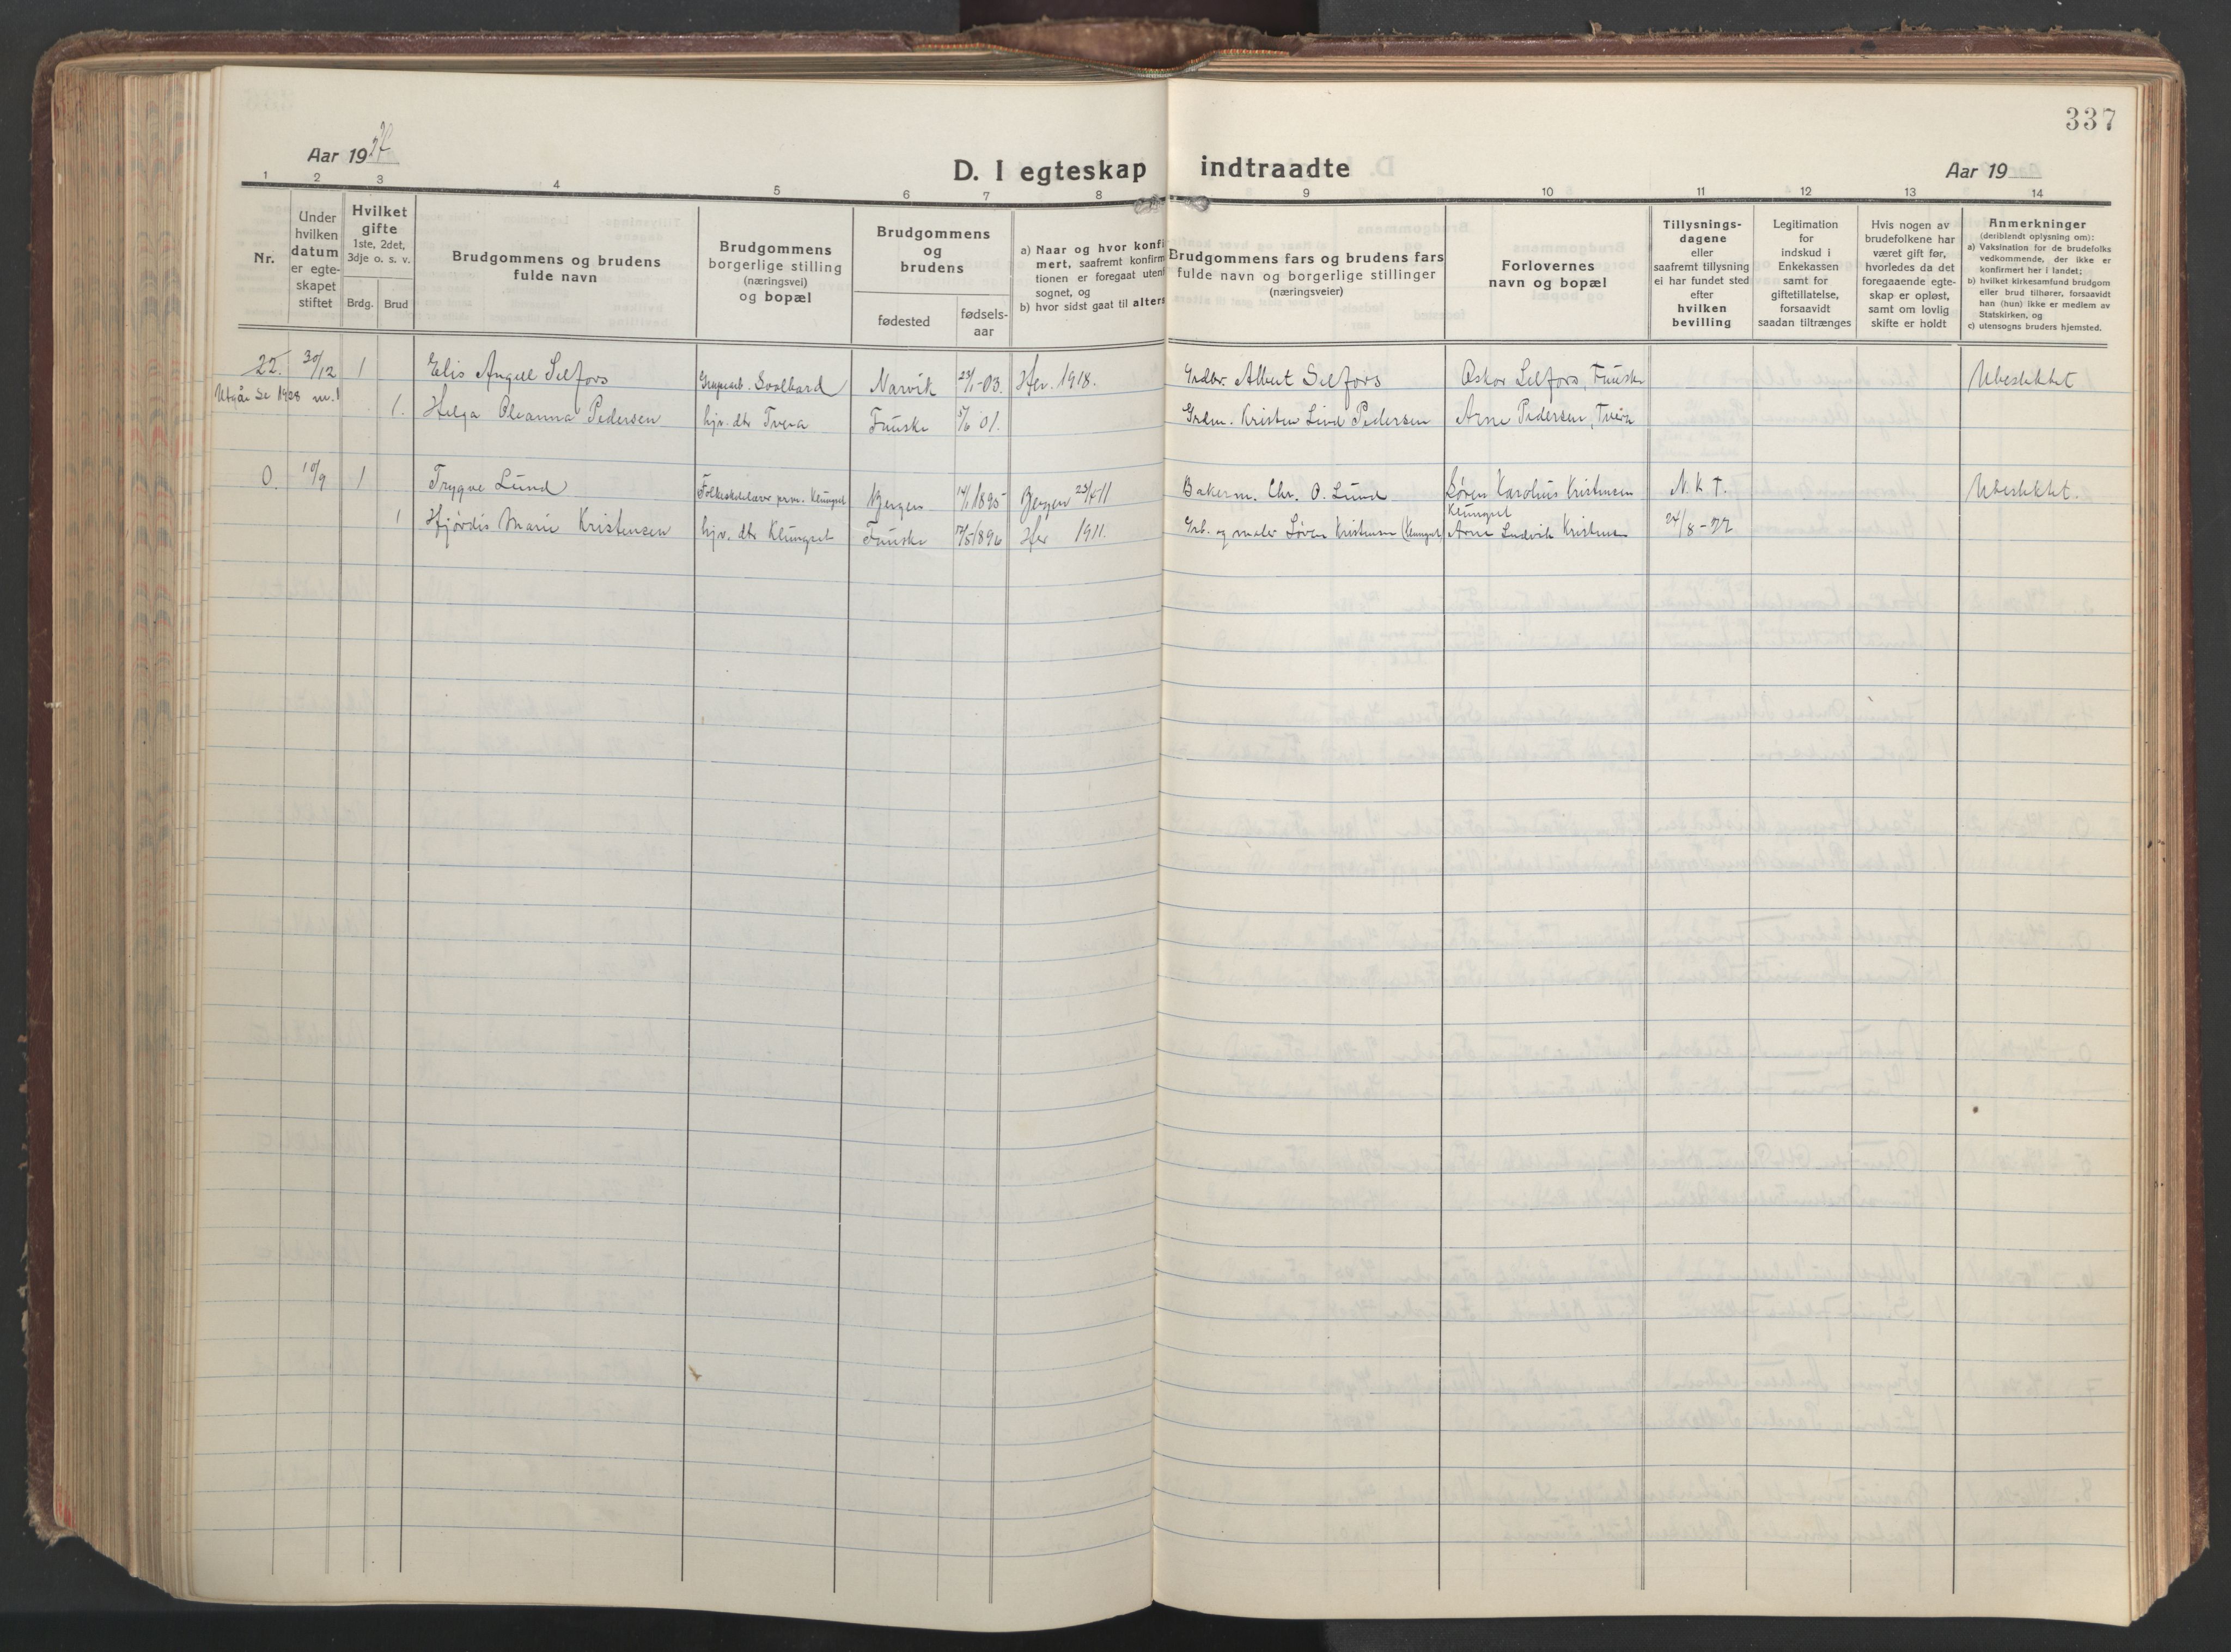 337
Aar 1927
D. I egteskap indtraadte
Aar 19
1 2 3 4 5 6 7 8 9 10 11 12 13 14
Nr.
Under
hvilken
datum
er egte-
skapet
stiftet
Hvilket
gifte
1ste, 2det,
3dje o. s. v.
Brdg. Brud
Brudgommens og brudens
fulde navn
Brudgommens
borgerlige stilling
(næringsvei)
og bopæl
Brudgommens
og
brudens
fødested
fødsels-
aar
a) Naar og hvor konfi
mert, saafremt konfirm
tionen er foregaat utenf
sognet, og
b) hvor sidst gaat til alters
Brudgommens fars og brudens fars
fulde navn og borgerlige stillinger
(næringsveier)
Forlovernes
navn og bopæl
Tillysnings-
dagene
eller
saafremt tillysning
ei har fundet sted
efter
hvilken
bevilling
Legitimation
for
indskud i
Enkekassen
samt for
giftetillatelse,
forsaavidt
saadan tiltrænges
Hvis nogen av
brudefolkene har
været gift før,
hvorledes da det
foregaaende egte-
skap er opløst,
samt om lovlig
skifte er holdt
Anmerkninger
(deriblandt oplysning om):
a) Vaksination for de brudefolks
vedkommende, der ikke er
konfirmert her i landet;
b) hvilket kirkesamfund brudgom
eller brud tilhører, forsaavidt
han (hun) ikke er medlem av
Statskirken, og
c) utensogns bruders hjemsted.
22. 30/12 1 Elis Angell Selfors Svalbard Narvik 23/1-03. Her. 1918. Grdbr. Albert Selfors Oskar Selfors, Fauske Ubeslektet
Utgår Se 1928 nr. 1
1. Helga Oleanna Pedersen hjv. dtr Tvera Fauske 5/6 01. Grdm. Kristen Lind Pedersen Arne Pedersen, Tvera
0. 10/9 1 Trygve Lund Folkeskolelærer Klungset Bergen 14/1 1895 Bergen 23/4-11 Bakerm. Chr. O. Lund Søren Karolius Kristensen N. k. T. Ubeslektet.
Klungset
1 Hjørdis Marie Kristensen hjv. dtr Klungset Fauske 17/5 1896 Her 1911. Grb. og maler Søren Kristensen (Klungset) Arne Ludvik Kristensen 24/8-27